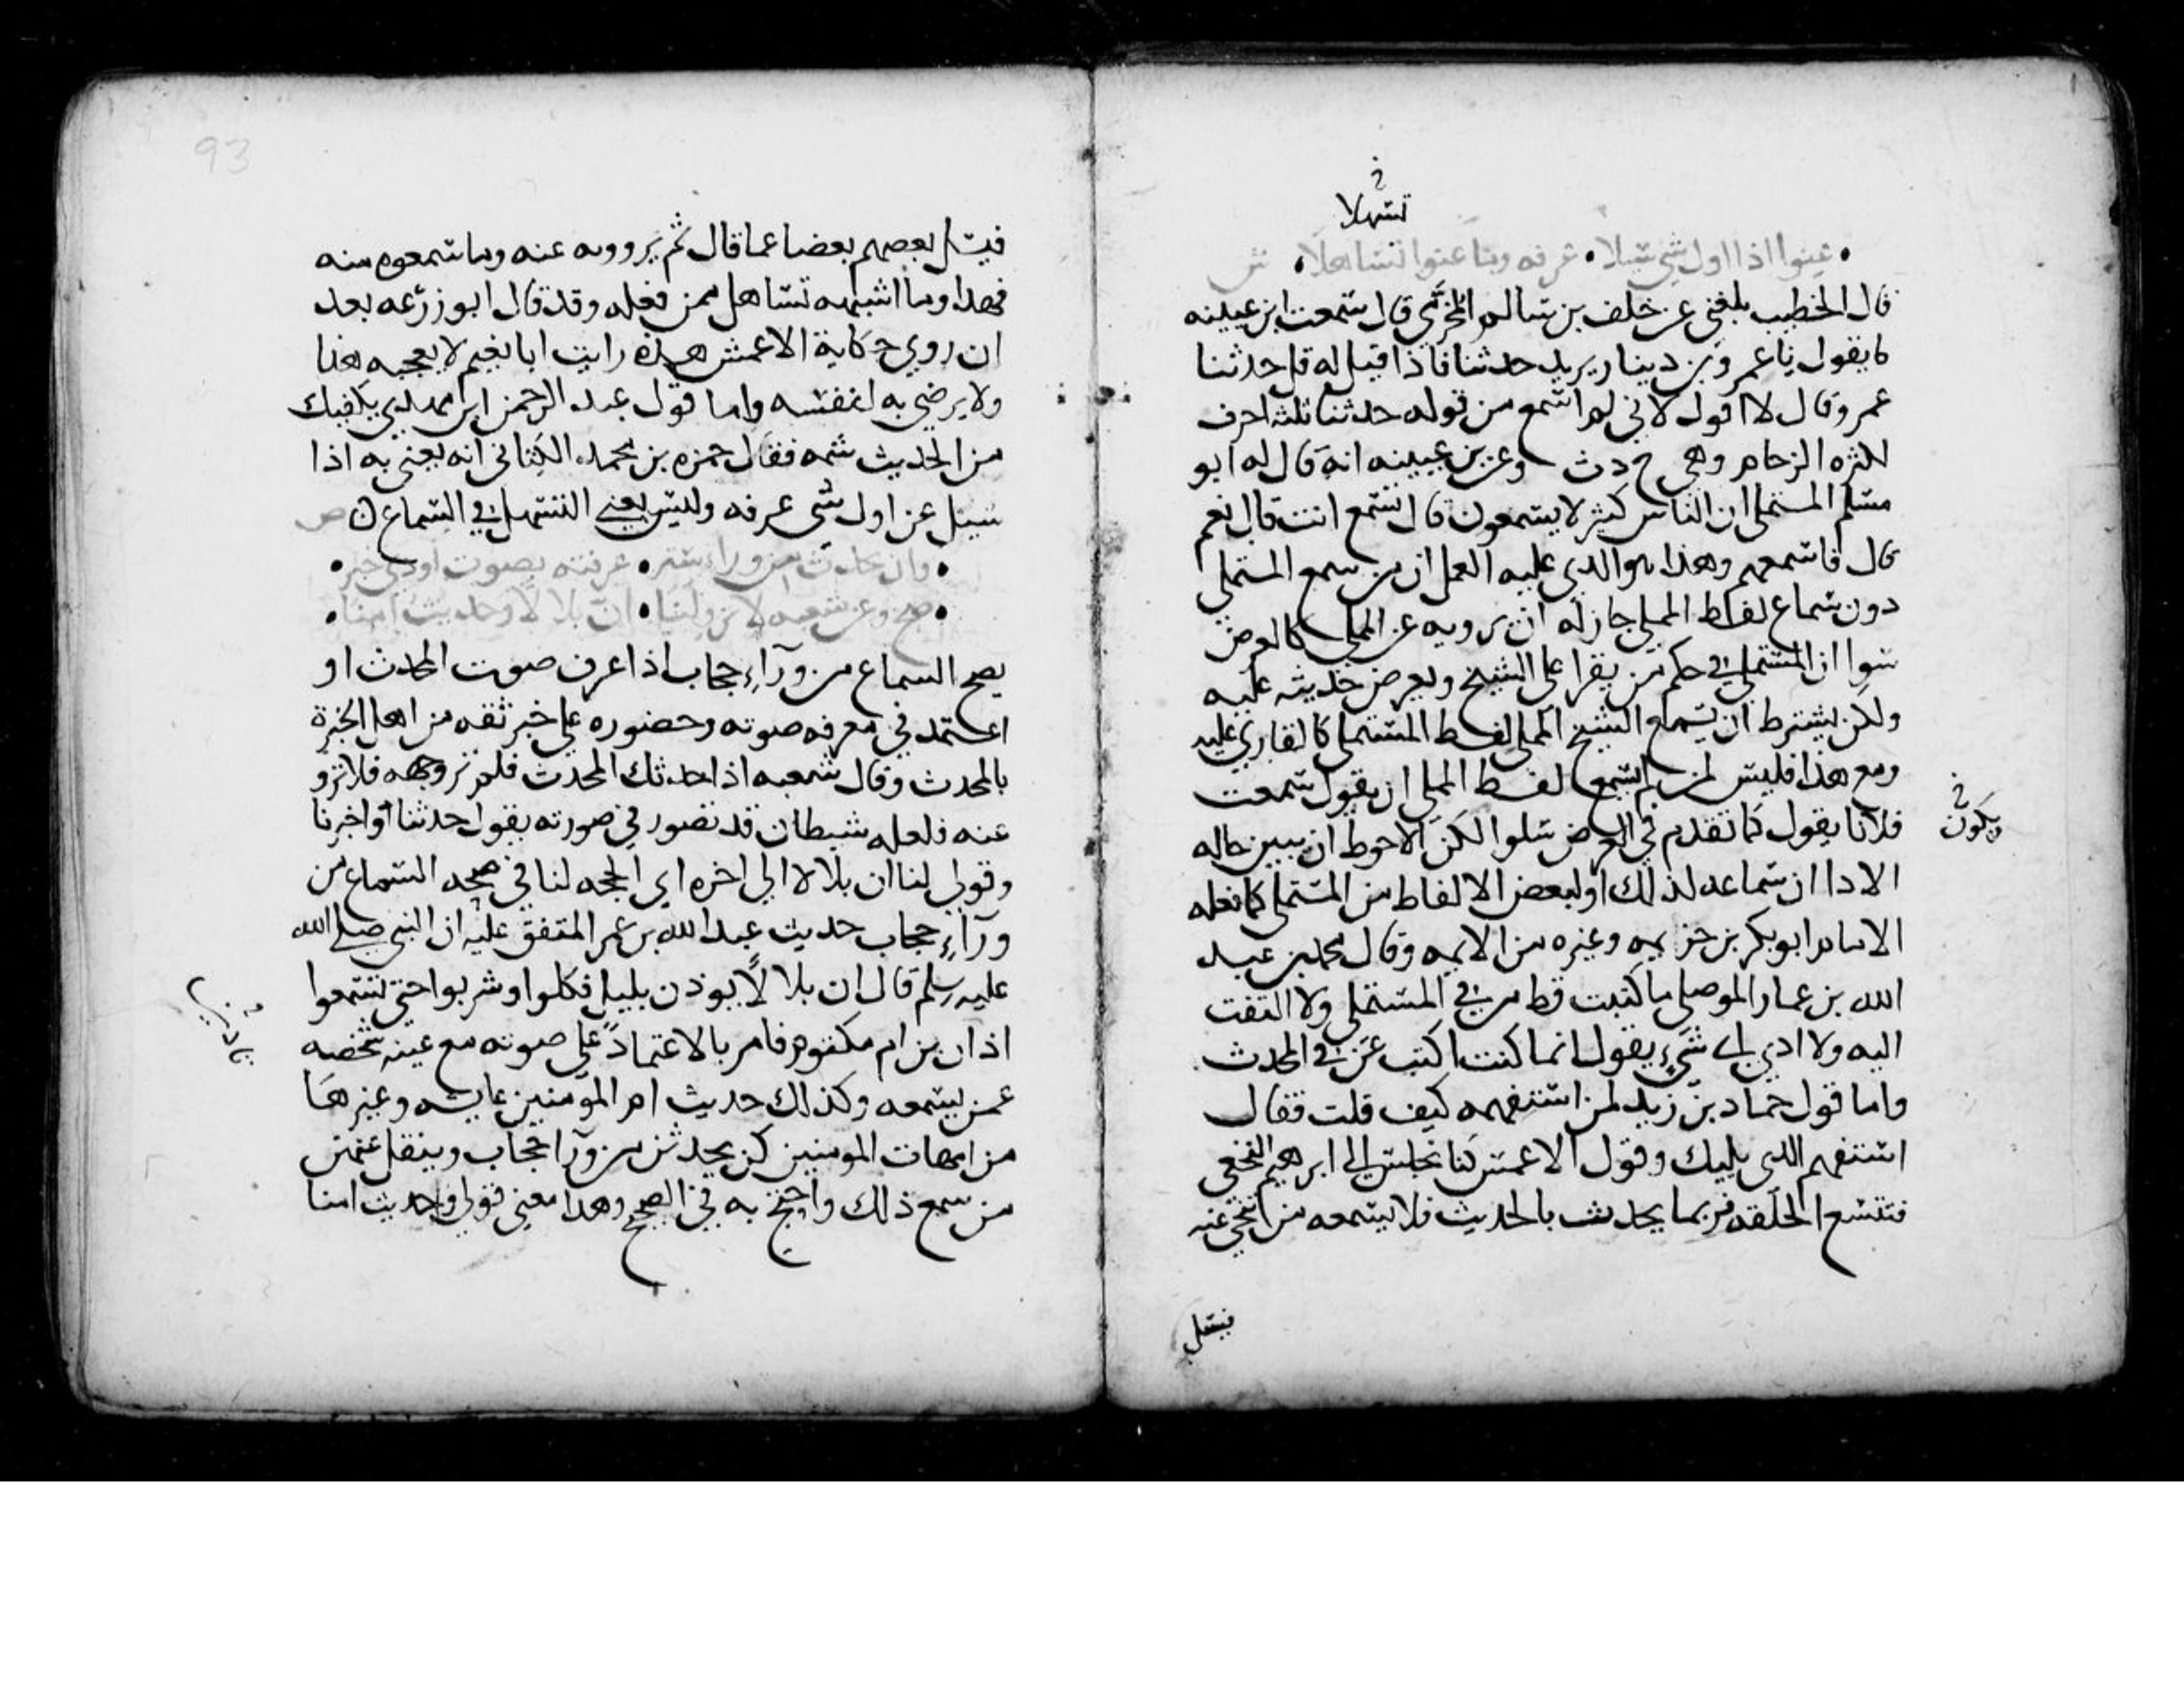 تسهلا
• عنوا اذا اول شي سيلا • عرفه وما عنوا تساهلا • ش
قال الخطيب بلغني عن خلف بن سالم المخرمي قال سمعت ابن عيينه
يقول نا عمرو بن دينار يريد حدثنا فاذا قيل له قل حدثنا
عمرو قال لا اقول لاني لم اسمع من قوله حدثنا ثلثه احرف
لكثره الزحام وهي ح د ث وعن بن عيينه انه قال له ابو
مسلم المستملي ان الناس كثير لا يسمعون قال تسمع انت قال نعم
قال فاسمعهم وهذا هو الذي عليه العمل ان من سمع المستملي
دون سماع لفظ المملي جاز له ان يرويه عن المملي كالعرض
سوا ان المستملي في حكم من يقرا على الشيخ ويعرض حديثه عليه
ولكن يشترط ان يسمع الشيخ المملي لفظ المستملي كالقاري عليه
ومع هذا فليس لمن لم يسمع لفظ المملي ان يقول سمعت
فلانا يقول كما تقدم في العرض سلوا لكن الاحوط ان يبين حاله
ويكون
الادا ان سماعه لذلك او لبعض الالفاظ من المستملي كما فعله
الامام ابو بكر بن خزيمه وغيره من الايمه وقال محمد بن عبد
الله بن عمار الموصلي ما كتبت قط من في المستملي ولا التفت
اليه ولا ادري اي شيء يقول انما كنت اكتب عن في المحدث
واما قول حماد بن زيد لمن استفهمه كيف قلت فقال
استفهم الذي يليك وقول الاعمش كنا نجلس الى ابرهيم النخعي
فتتسع الحلقه فربما يحدث بالحديث فلا يسمعه من تنحى عنه
فيسل
93
فيسل بعضهم بعضا عما قال ثم يروونه عنه وما سمعوه منه
فهذا وما اشبهه تساهل ممن فعله وقد قال ابو زرعه بعد
ان روي حكاية الاعمش هذه رايت ابا نعيم لا يعجبه هذا
ولا يرضى به لنفسه واما قول عبد الرحمن ابن مهدي يكفيك
من الحديث شمه فقال حمزه بن محمد الكناني انه يعني به اذا
سيل عن اول شي عرفه وليس يعني التسهل في السماع ص
• وان يحدث من وراء ستر • عرفته بصوت او ذي خبر •
• صح وعن شعبه لا ترو لنا • ان بلالا وحديث امنا •
يصح السماع من وراء حجاب اذا عرف صوت المحدث او
اعتمد في معرفه صوته وحضوره على خبر ثقه من اهل الخبرة
بالمحدث وقال شعبه اذا حدثك المحدث فلم تر وجهه فلا ترو
عنه فلعله شيطان قد تصور في صورته يقول حدثنا او اخبرنا
وقولي لنا ان بلالا الي اخره اي الحجه لنا في صحه السماع من
وراء حجاب حديث عبد الله بن عمر المتفق عليه ان النبي صلى الله
عليه وسلم قال ان بلالا يوذن بليل فكلوا وشربوا حتى تسمعوا
اذان بن ام مكتوم فامر بالاعتماد على صوته مع غيبه شخصه
عمن يسمعه وكذلك حديث ام المومنين عايشه وغيرها
من امهات المومنين كن يحدثن من وراء حجاب وينقل عنهن
من سمع ذلك واحتج به في الصحيح وهذا معني قولي وحديث امنا